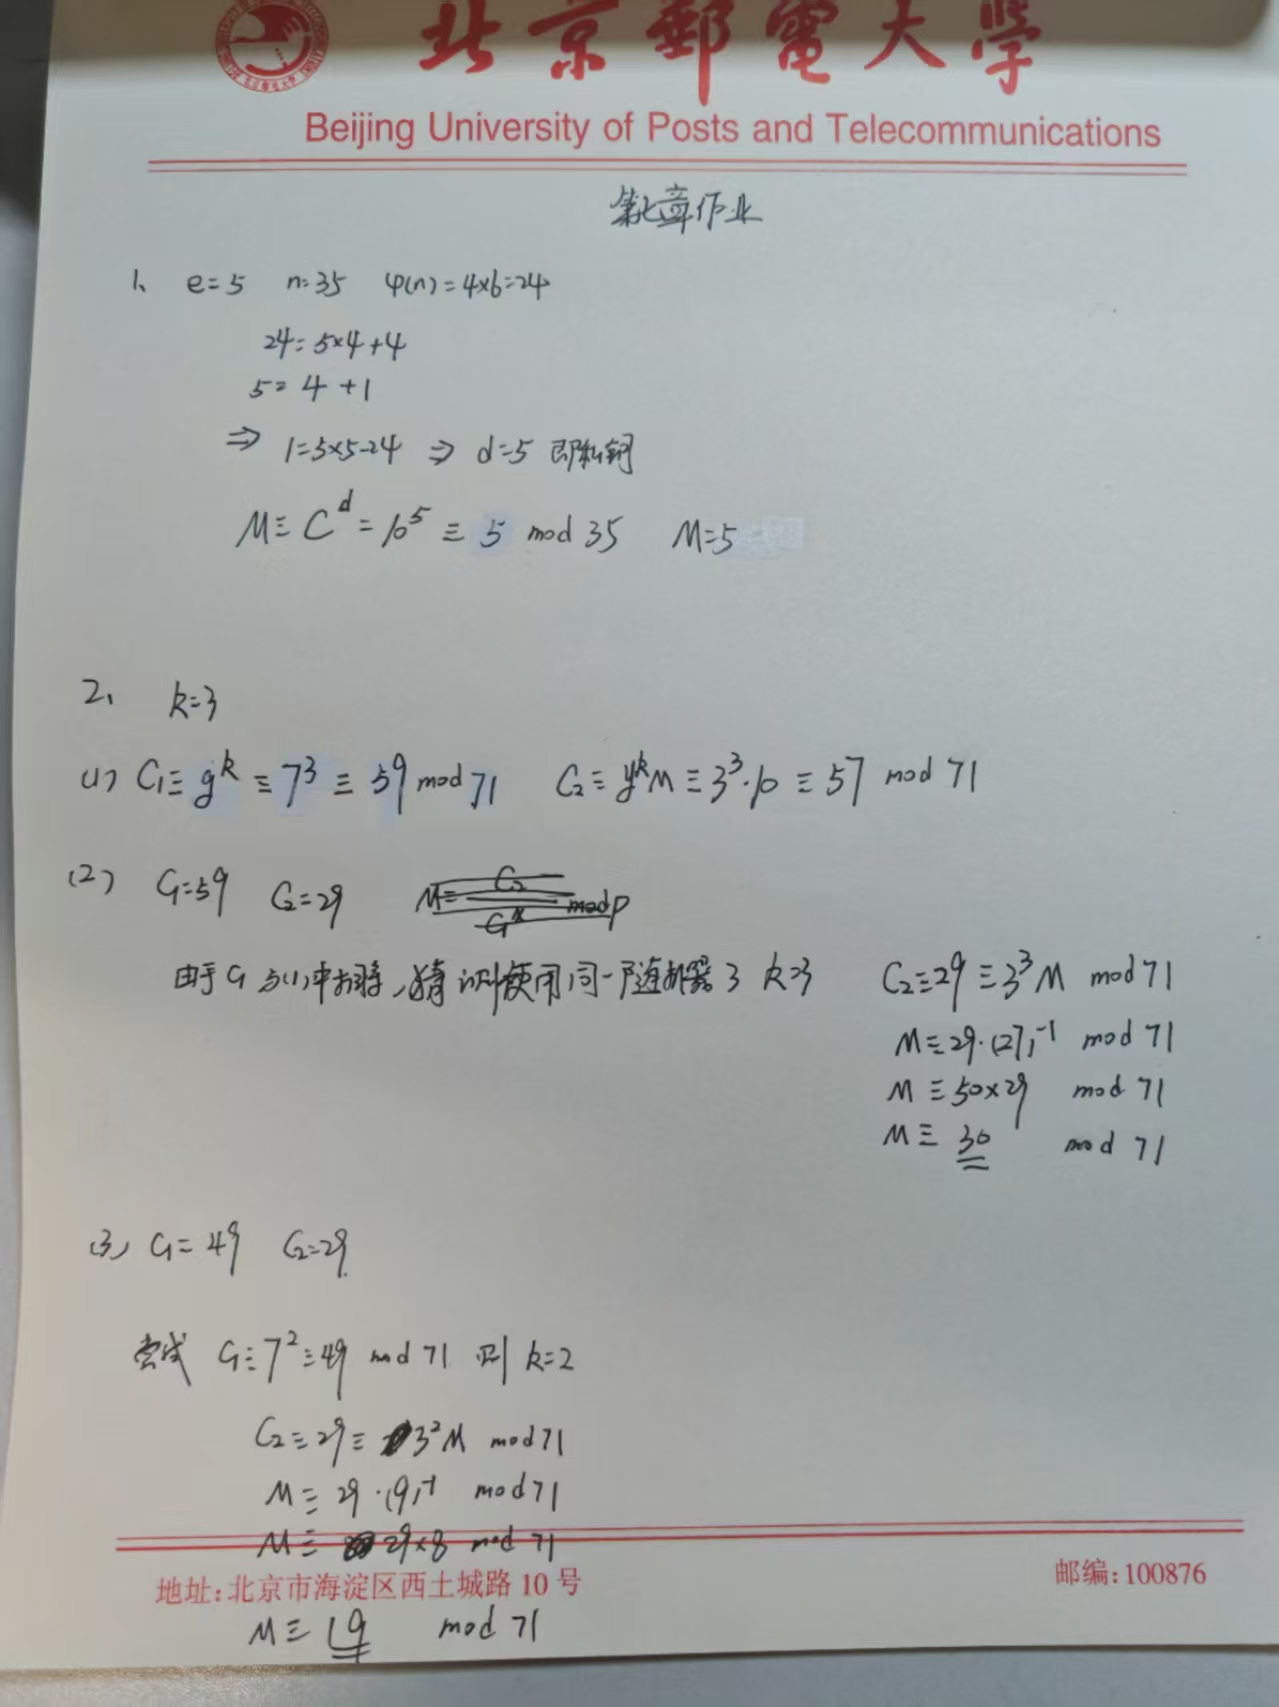 北京郵電大學
Beijing University of Posts and Telecommunications
第七章作业
1、 e=5 n=35 φ(n)=4×6=24
24=5×4+4
5=4+1
⇒ 1=5×5-24 ⇒ d=5 即私钥
M≡C^d=10^5≡5 mod 35 M=5
2、 k=3
(1) C₁≡g^k≡7^3≡59 mod 71 C₂≡y^kM≡3^3·10≡57 mod 71
(2) C₁=59 C₂=29 M=C₂/C₁^x mod p
由于C₁与(1)中相等,猜测使用同一随机器3 k=3 C₂≡29≡3^3M mod 71
M≡29·(27)^-1 mod 71
M≡50×29 mod 71
M≡30 mod 71
(3) C₁=49 C₂=29
尝试 C₁≡7^2≡49 mod 71 则 k=2
C₂≡29≡3^2M mod 71
M≡29·(9)^-1 mod 71
M≡29×8 mod 71
地址:北京市海淀区西土城路10号 邮编:100876
M≡19 mod 71